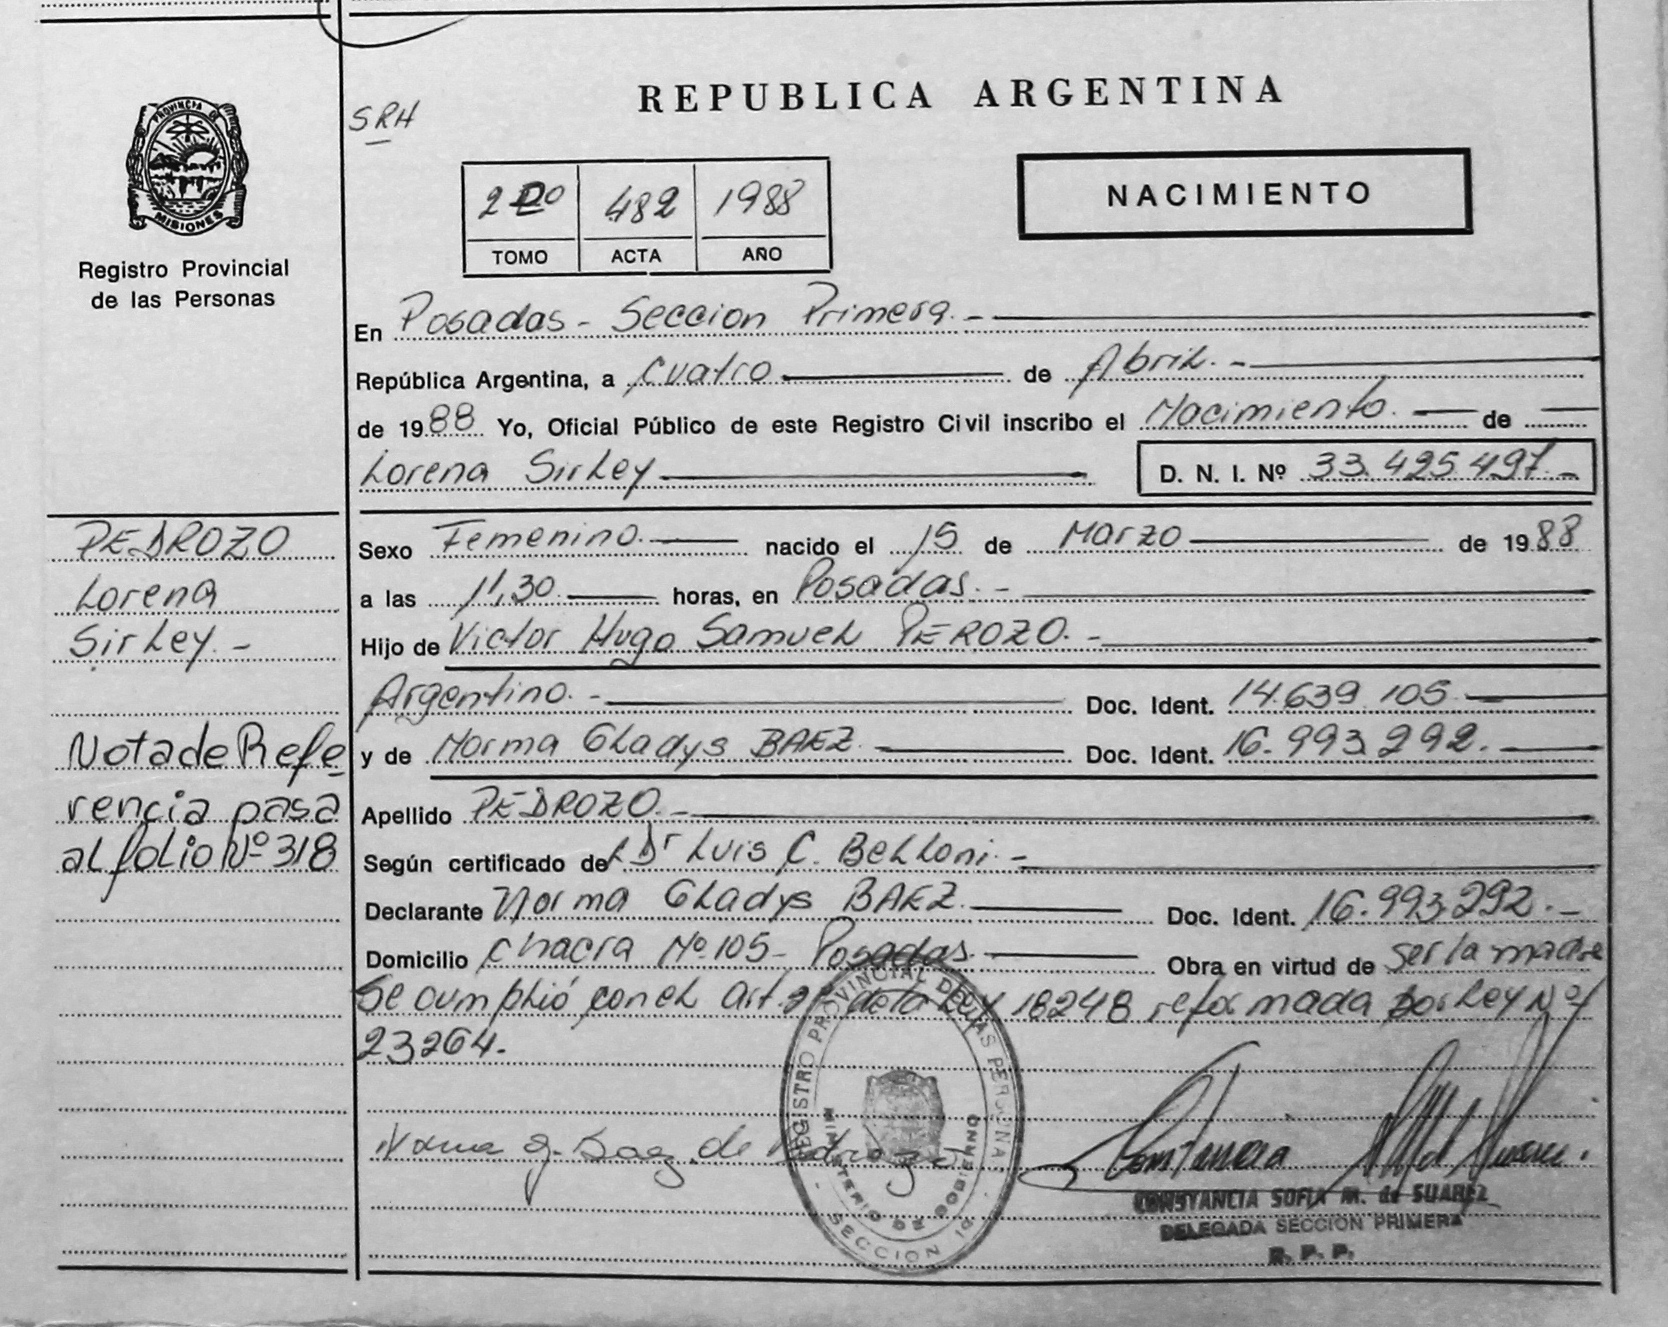 PROVINCIA DE
MISIONES
Registro Provincial
de las Personas
SRH
REPUBLICA ARGENTINA
2DO 482 1988
TOMO ACTA AÑO
NACIMIENTO
En Posadas - Seccion Primera. -
República Argentina, a Cuatro de Abril. -
de 1988 Yo, Oficial Público de este Registro Civil inscribo el Nacimiento. de
Lorena Sirley D. N. I. Nº 33.425.497. -
PEDROZO
Lorena
Sirley. -
Nota de Refe
rencia pasa
al folio Nº 318
Sexo Femenino. nacido el 15 de Marzo de 1988
a las 11,30 horas, en Posadas. -
Hijo de Victor Hugo Samuel PEROZO. -
Argentino. - Doc. Ident. 14.639.105
y de Norma Gladys BAEZ. Doc. Ident. 16.993.292.
Apellido PEDROZO. -
Según certificado del Dr Luis C. Belloni. -
Declarante Norma Gladys BAEZ. Doc. Ident. 16.993.292. -
Domicilio Chacra Nº 105 - Posadas. Obra en virtud de ser la madre
Se cumplió con el art. de la Ley 18248 reformada por Ley Nº
23264.
REGISTRO PROVINCIAL DE LAS PERSONAS
MINISTERIO DE GOBIERNO
SECCION 1ª
Norma G. Baez de Pedrozo
CONSTANCIA SOFIA M. de SUAREZ
DELEGADA SECCION PRIMERA
R. P. P.